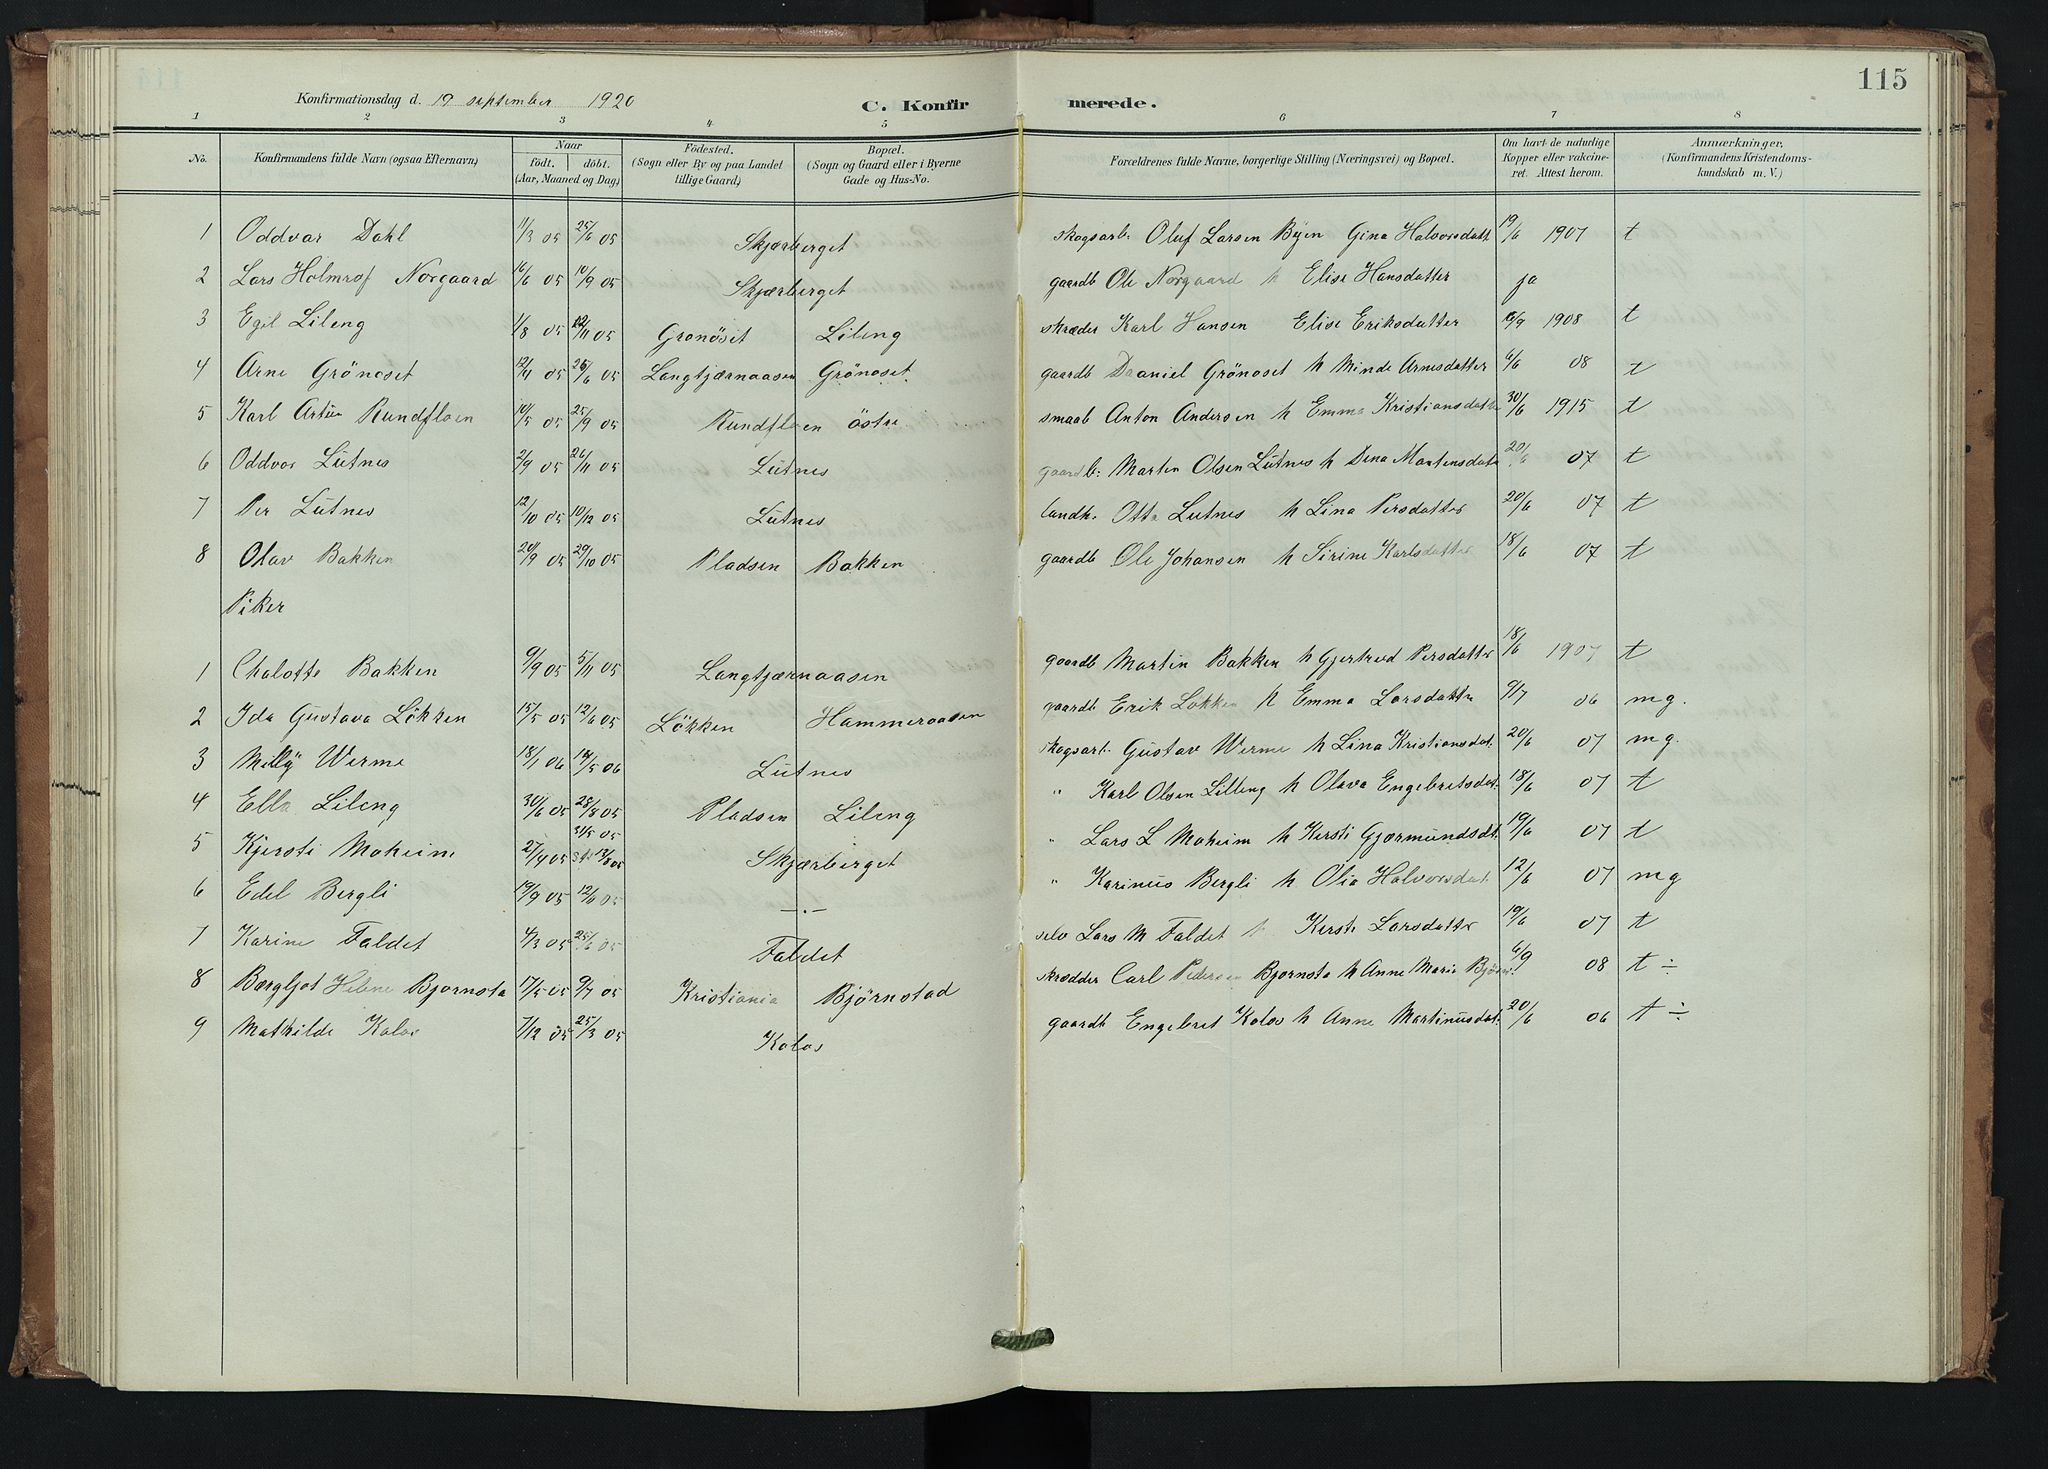 115
Konfirmationsdag d. 19 september 1920 C. Konfirmerede.
1 2 3 4 5 6 7 8
No. Konfirmandens fulde Navn (ogsaa Efternavn) Naar födt. döbt. (Aar, Maaned og Dag) Födested. (Sogn eller By og paa Landet tillige Gaard) Bopæl. (Sogn og Gaard eller i Byerne Gade og Hus-No. Forældrenes fulde Navne, borgerlige Stilling (Næringsvei) og Bopæl. Om havt de naturlige Kopper eller vakcineret. Attest herom. Anmærkninger, (Konfirmandens Kristendomskundskab m. V.)
1 Oddvar Dahl 11/3 05 25/6 05 Skjærberget skogsarb: Oluf Larsen Byen Gina Halvorsdatt 19/6 1907 t
2 Lars Holmrof Norgaard 16/6 05 10/9 05 Skjærberget gaardb Ole Norgaard h Elise Hansdatter ja
3 Egil Lileng 1/8 05 12/11 05 Gronöset Lileng skræder Karl Hansen Elise Eriksdatter 6/9 1908 t
4 Arne Grönoset 12/4 05 25/6 05 Langtjærnaasen Grönoset gaardb Daaniel Grönoset h Minde Arnesdatter 6/6 08 t
5 Karl Artur Rundfloen 10/5 05 25/9 05 Rundfloen östre smaab Anton Andersen h Emma Kristiansdatte 30/6 1915 t
6 Oddvar Lutnes 2/9 05 26/11 05 Lutnes gaardb: Martin Olsen Lutnes h Dina Martensdate 20/6 07 t
7 Per Lutnes 12/10 05 10/12 05 Lutnes landh. Otto Lutnes h Lina Persdatter 20/6 07 t
8 Olav Bakken 20/9 05 29/10 05 Pladsen Bakken gaardb Ole Johansen h Sirine Karlsdatter 18/6 07 t
Piker
1 Chalotte Bakken 9/9 05 5/11 05 Langtjærnaasen gaardb Martin Bakken h Gjertrud Persdatter 18/6 1907 t
2 Ida Gustava Lökken 15/5 05 12/6 05 Lökken Hammeraasen gaardb Erik Lokken h Emma Larsdatte 9/7 06 mg.
3 Melly Werme 18/1 06 14/5 06 Lutnes skogsarb. Gustav Werme h Lina Kristiansdat. 20/6 07 mg.
4 Ella Lileng 30/6 05 28/8 05 Pladsen Lileng " Karl Olsen Lilleng h Olava Engebretsdat. 18/6 07 t
5 Kjersti Moheim 27/4 05 31/5 05 13/8 05 Skjærberget " Lars L Moheim h Kersti Gjørmundsdt. 19/6 07 t
6 Edel Bergli 19/9 05 12/11 05 —.— " Karinus Bergli h Olia Halvorsdat. 12/6 07 mg
7 Karine Faldet 4/3 05 25/6 05 Faldet selv Lars M Faldet h Kersti Larsdatter 19/6 07 t
8 Bergljot Helene Bjornsta 17/5 05 9/7 05 Kristiania Björnstad skrædder Carl Pedersen Bjornsta h Anne Marie Bjørn. 6/9 08 t ÷
9 Mathilde Kolos 7/12 05 25/3 05 Kolos gaardb Engebret Kolos h Anne Martinusdat. 20/6 06 t ÷